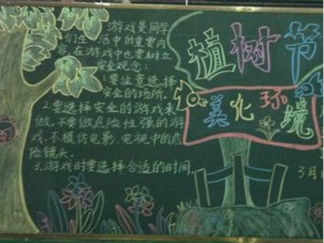 游戏是同学
们生活中的重要内
容,在游戏中也要树立
安全观念:
1.要注意选择
安全的场所.
2.要选择安全的游戏来
做.不要做危险性强的游
戏,不模仿电影.电视中的危
险镜头.
3.游戏时要选择合适的时间
植树节
美化环境
3月